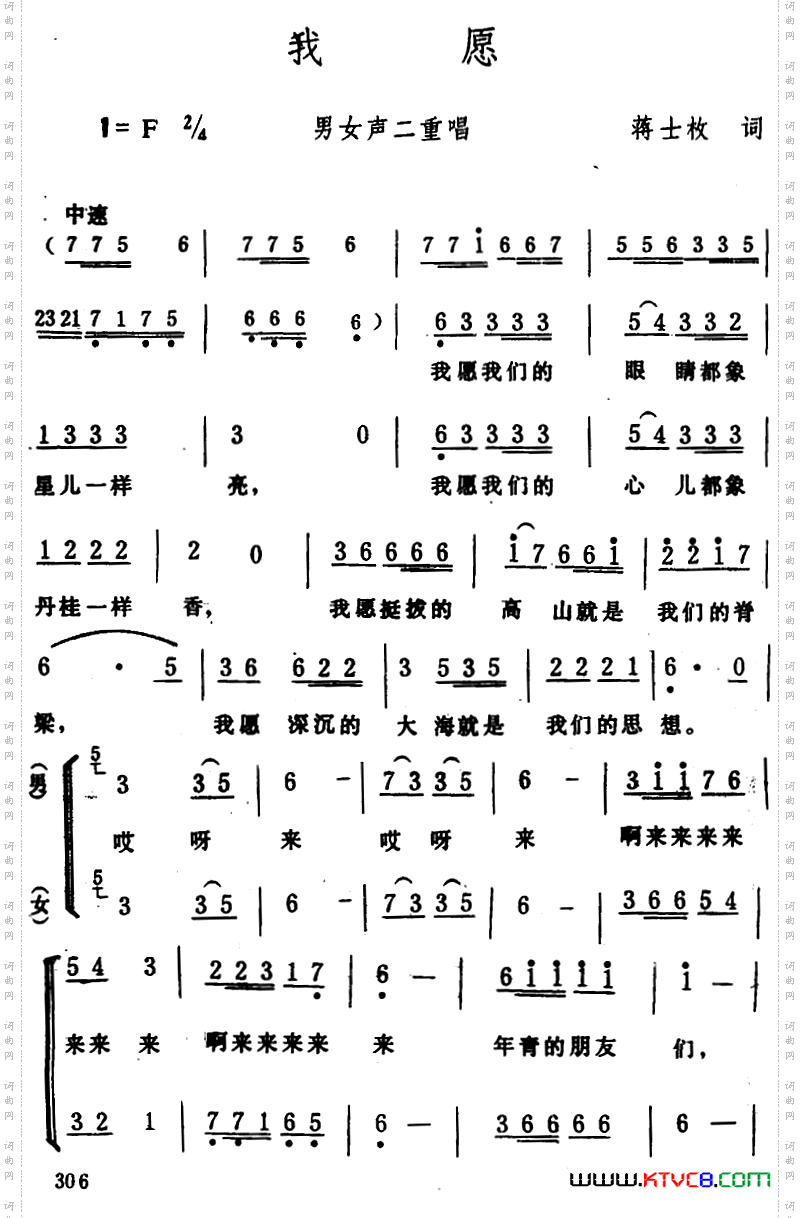 我 愿
1= F 2/4 男女声二重唱 蒋士枚 词
中速
( 7 7 5 6 | 7 7 5 6 | 7 7 i 6 6 7 | 5 5 6 3 3 5 |
23 21 7 1 7 5 | 6 6 6 6 ) | 6 3 3 3 3 | 5 4 3 3 2 |
我愿我们的 眼 睛都象
1 3 3 3 | 3 0 | 6 3 3 3 3 | 5 4 3 3 2 |
星儿一样 亮, 我愿我们的 心 儿都象
1 2 2 2 | 2 0 | 3 6 6 6 6 | i 7 6 6 i | 2 2 i 7
丹桂一样 香, 我愿挺拨的 高 山就是 我们的脊
6 · 5 | 3 6 6 2 2 | 3 5 3 5 | 2 2 2 1 | 6 · 0 |
梁, 我愿 深沉的 大 海就是 我们的思 想。
(男) 5 3 3 5 | 6 - | 7 3 3 5 | 6 - | 3 i i 7 6 |
哎 呀 来 哎 呀 来 啊来来来来
(女) 5 3 3 5 | 6 - | 7 3 3 5 | 6 - | 3 6 6 5 4 |
5 4 3 | 2 2 3 1 7 | 6 - | 6 i i i i | i - |
来来 来 啊来来来来 来 年青的朋友 们,
3 2 1 | 7 7 1 6 5 | 6 - | 3 6 6 6 6 | 6 - |
306
www.KTVC8.com
词曲网